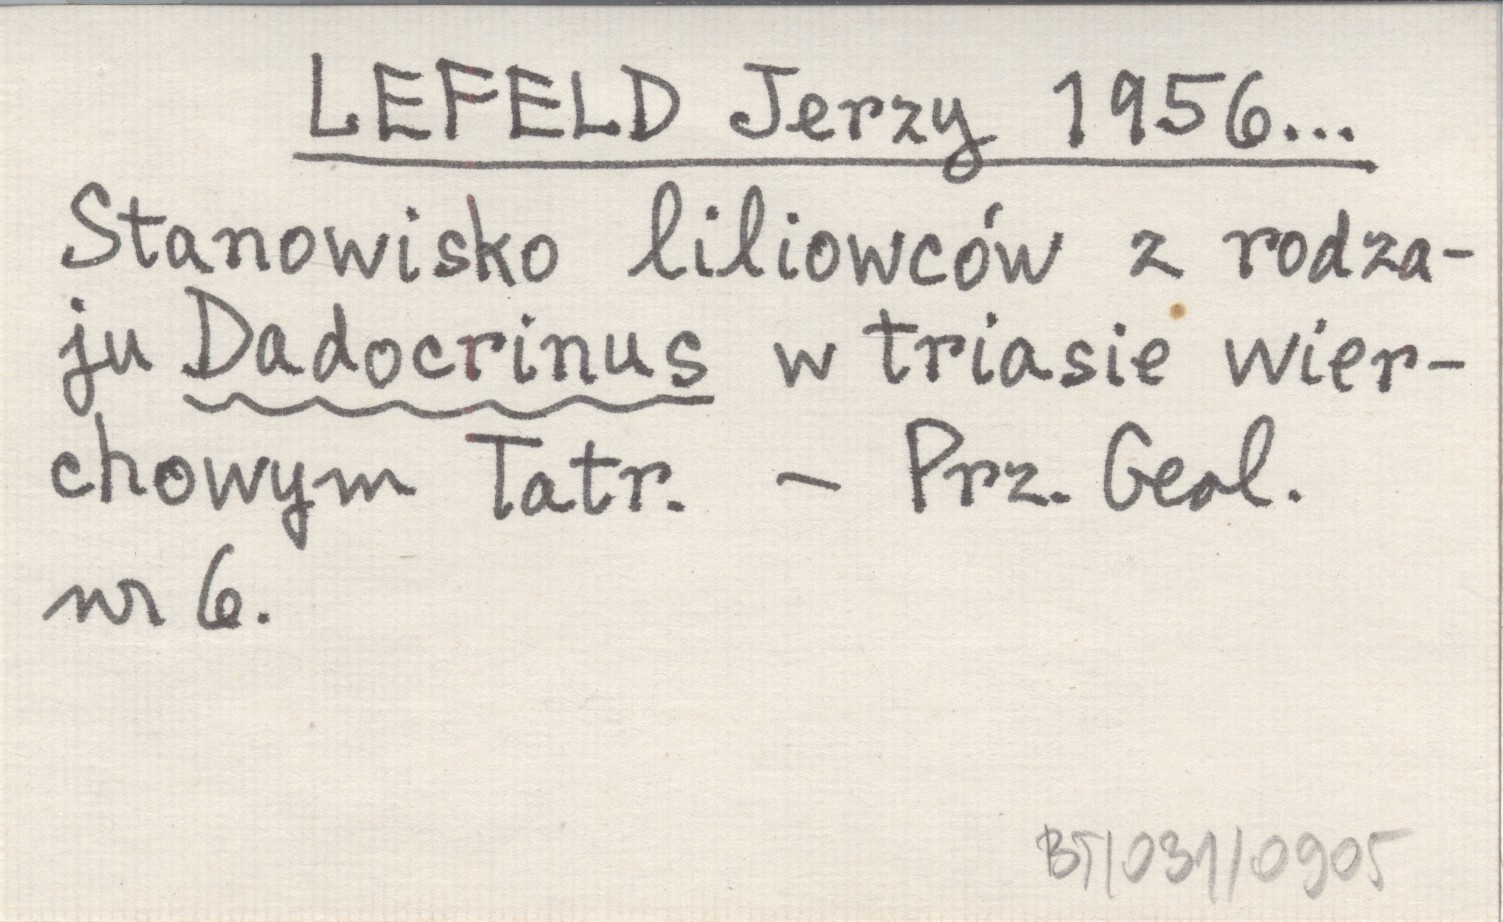 LEFELD Jerzy 1956...
Stanowisko liliowców z rodza-
ju Dadocrinus w triasie wier-
chowym Tatr. - Prz. Geol.
nr 6.
BT/031/0905